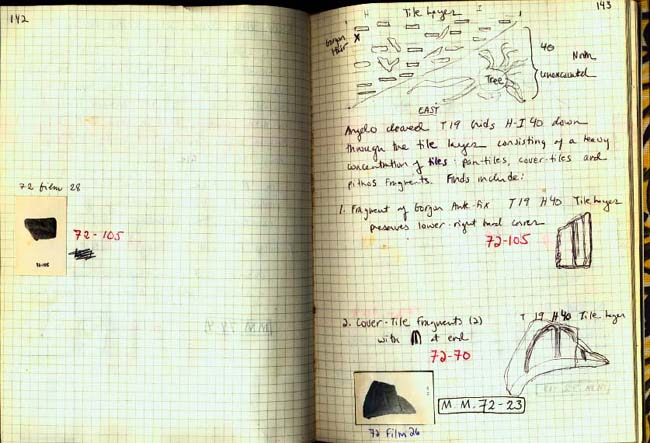 142
72 film 28
72-105
72-105
143
H Tile Layer I
Gorgon
Hair
X
40
North
unexcavated
Tree
EAST
Angelo cleared T19 Grids H-I 40 down
through the tile layer consisting of a heavy
concentration of tiles: pan-tiles, cover-tiles and
pithos fragments. Finds include:
1. Fragment of Gorgon Antefix T19 H40 Tile Layer
preserves lower right hand corner
72-105
2. Cover-Tile Fragments (2) T 19 H40 Tile Layer
with at end
72-70
M.M. 72-23
72 Film 26